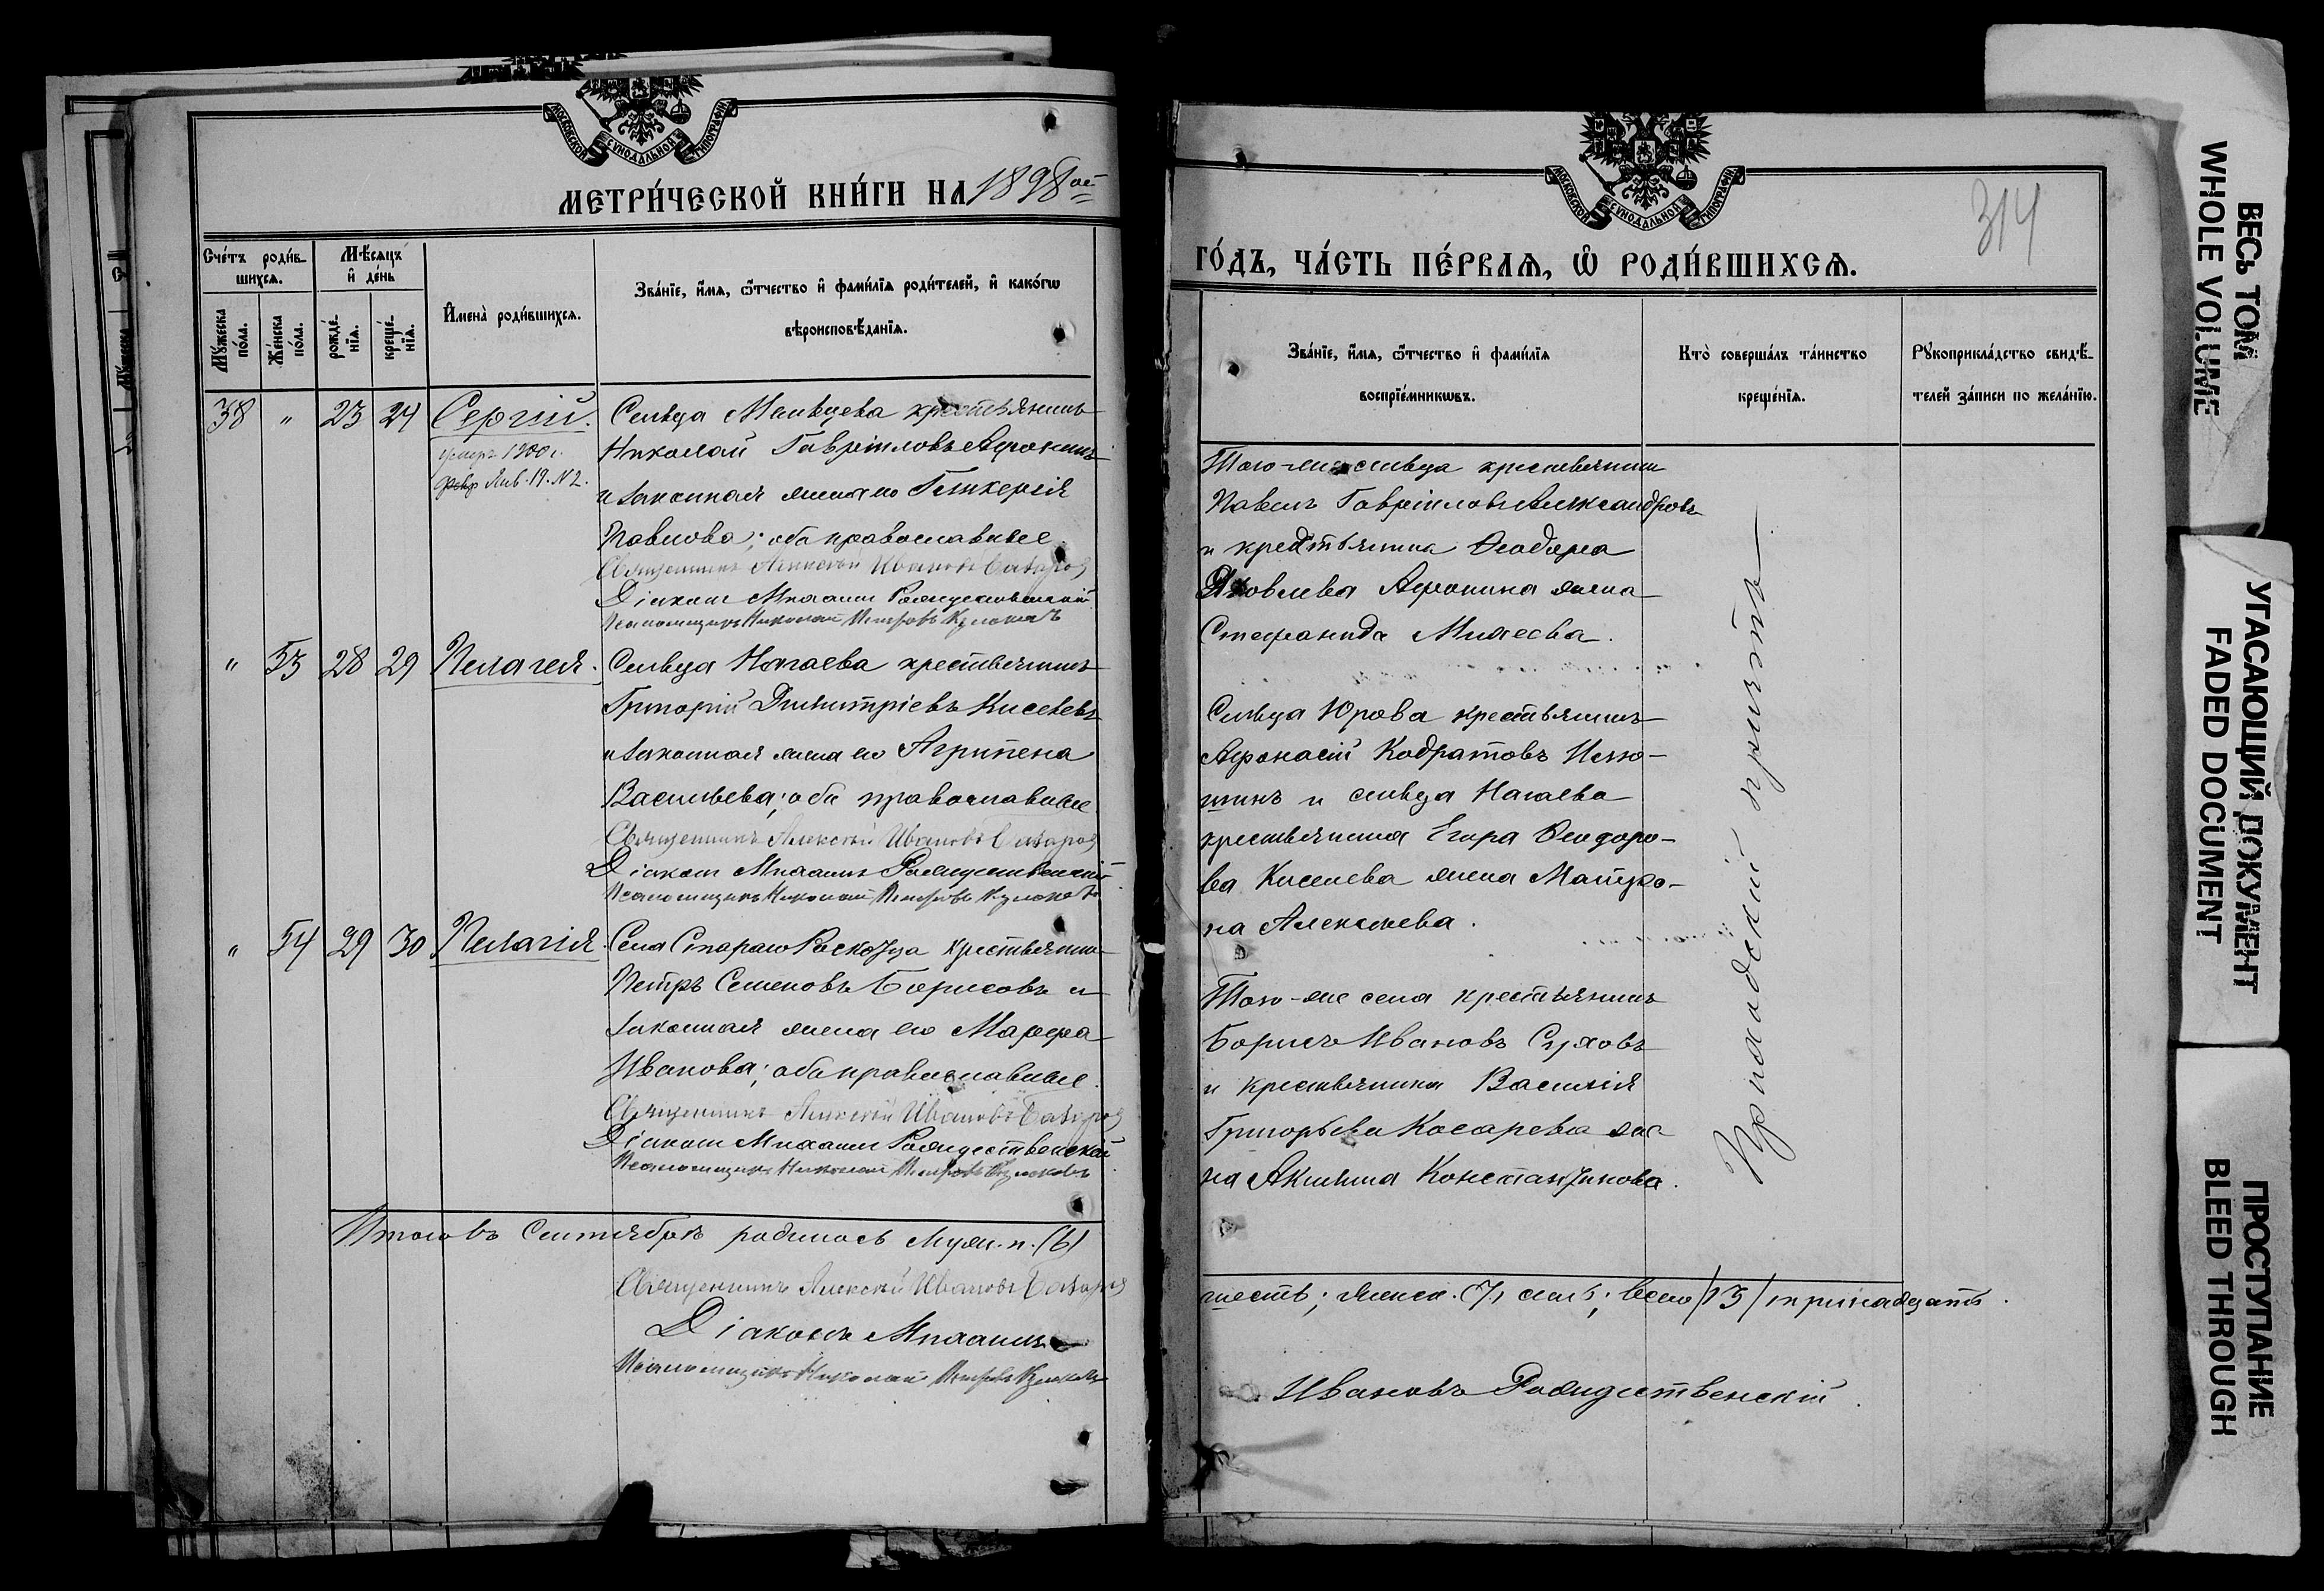 МОСКОВСКОЙ СѴНОДАЛЬНОЙ ТИПОГРАФІИ
МЕТРИ́ЧЕСКОЙ КНИ́ГИ НА 1898ой
Сче́тъ роди́в-
шихся.
Мѣ́сяцъ
и де́нь
Му́жеска
по́ла.
Же́нска
по́ла.
рожде́-
нїя.
креще́-
нїя.
Имена̀ роди́вшихся.
Зва́нїе, и́мя, ѻ́тчество и фами́лїя роди́телей, и како́гѡ
вѣроисповѣ́данїя.
38 " 23 24 Сергій.
умеръ 1900 г.
Янв. 19. N 2.
Сельца Мельцева крестьянинъ
Николай Гавріиловъ Афонинъ
и законная жена его Гликерія
Павлова; оба православные
Священникъ Алексѣй Ивановъ
Діаконъ Михаилъ Рождественскій
Псаломщикъ Николай Петровъ
" 53 28 29 Пелагея.
Сельца Нагаева крестьянинъ
Григорій Димитріевъ Киселевъ
и законная жена его Агрипена
Васильева; оба православные
Священникъ Алексѣй Ивановъ
Діаконъ Михаилъ Рождественскій
Псаломщикъ Николай Петровъ
" 54 29 30 Пелагія.
Села Стараго крестьянинъ
Петръ Семеновъ Борисовъ и
законная жена его Марфа
Иванова; оба православные.
Священникъ Алексѣй Ивановъ
Діаконъ Михаилъ Рождественскій
Псаломщикъ Николай Петровъ
Итого въ Сентябрѣ родилось муж. п. (6)
Священникъ Алексѣй Ивановъ
Діаконъ Михаилъ
Псаломщикъ Николай Петровъ
МОСКОВСКОЙ СѴНОДАЛЬНОЙ ТИПОГРАФІИ
314
ГО́ДЪ, ЧА́СТЬ ПЕ́РВАЯ, Ѡ РОДИ́ВШИХСЯ.
Зва́нїе, и́мя, ѻ́тчество и фами́лїя
воспрїе́мникѡвъ.
Кто̀ соверша́лъ та́инство
креще́нїя.
Рꙋкоприкла́дство свидѣ́-
телей за́писи по жела́нїю.
Того-же сельца крестьянинъ
Павелъ Гавріиловъ Александровъ
и крестьянина Ѳеодора
Яковлева Афонина жена
Стефанида Михеева.
Сельца Юрова крестьянинъ
Афонасій Кодратовъ Илю-
шинъ и сельца Нагаева
крестьянина Егора Ѳеодоро-
ва Киселева жена Матро-
на Алексѣева.
Того-же села крестьянинъ
Борисъ Ивановъ Суховъ
и крестьянина Василія
Григорьева Косарева же-
на Акилина Константинова.
Приходскій причтъ
шесть; женск. (7) семь; всего /13/ тринадцать.
Ивановъ Рождественскій.
ВЕСЬ ТОМ
WHOLE VOLUME
УГАСАЮЩИЙ ДОКУМЕНТ
FADED DOCUMENT
ПРОСТУПАНИЕ
BLEED THROUGH